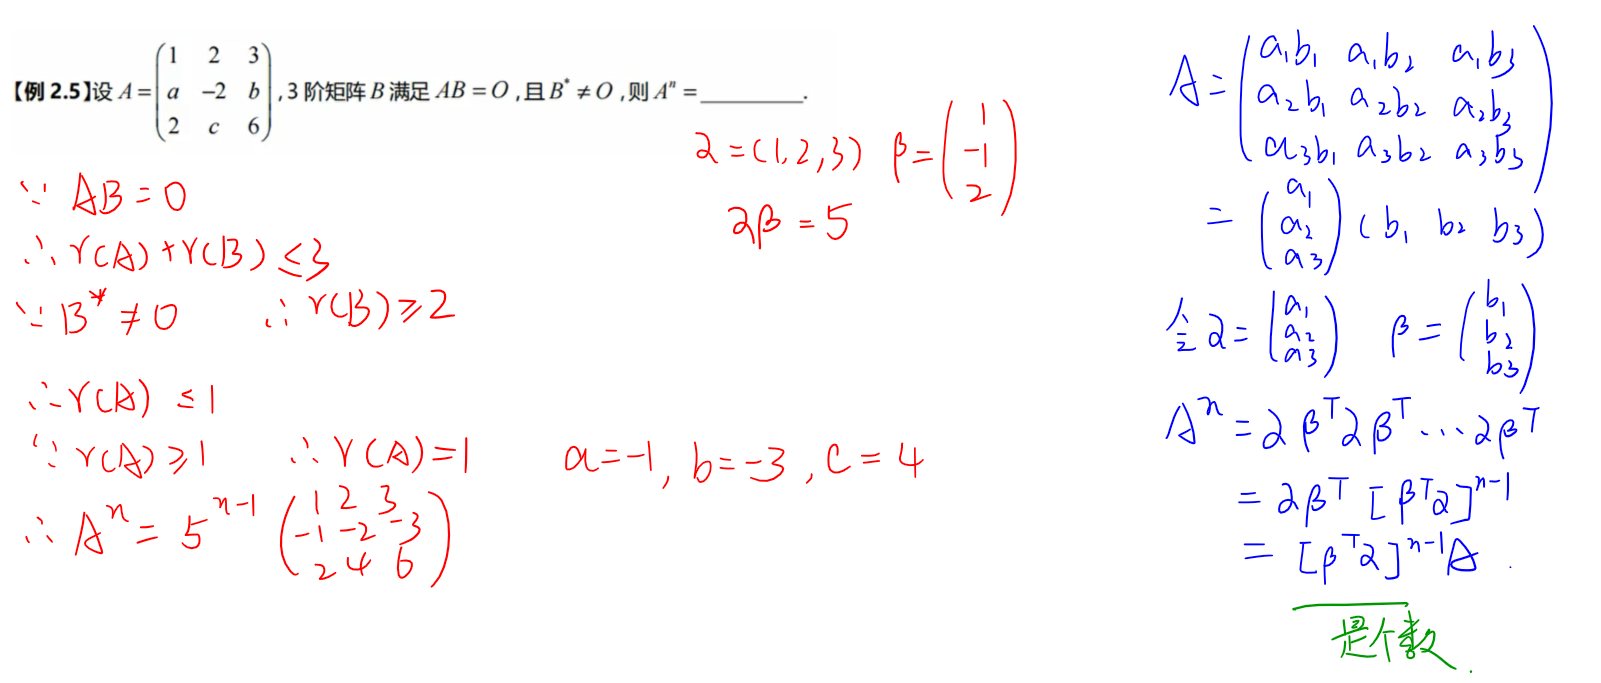 【例 2.5】设 A = (1 2 3; a -2 b; 2 c 6) , 3 阶矩阵 B 满足 AB = O , 且 B* ≠ O , 则 Aⁿ = ________.
∵ AB = 0
∴ r(A) + r(B) ≤ 3
∵ B* ≠ 0 ∴ r(B) ≥ 2
∴ r(A) ≤ 1
∵ r(A) ≥ 1 ∴ r(A) = 1 a = -1, b = -3, c = 4
∴ Aⁿ = 5ⁿ⁻¹ (1 2 3; -1 -2 -3; 2 4 6)
α = (1, 2, 3) β = (1; -1; 2)
αβ = 5
A = (a₁b₁ a₁b₂ a₁b₃; a₂b₁ a₂b₂ a₂b₃; a₃b₁ a₃b₂ a₃b₃)
= (a₁; a₂; a₃) (b₁ b₂ b₃)
令 α = (a₁; a₂; a₃) β = (b₁; b₂; b₃)
Aⁿ = αβᵀαβᵀ...αβᵀ
= αβᵀ [βᵀα]ⁿ⁻¹
= [βᵀα]ⁿ⁻¹A .
是个数.